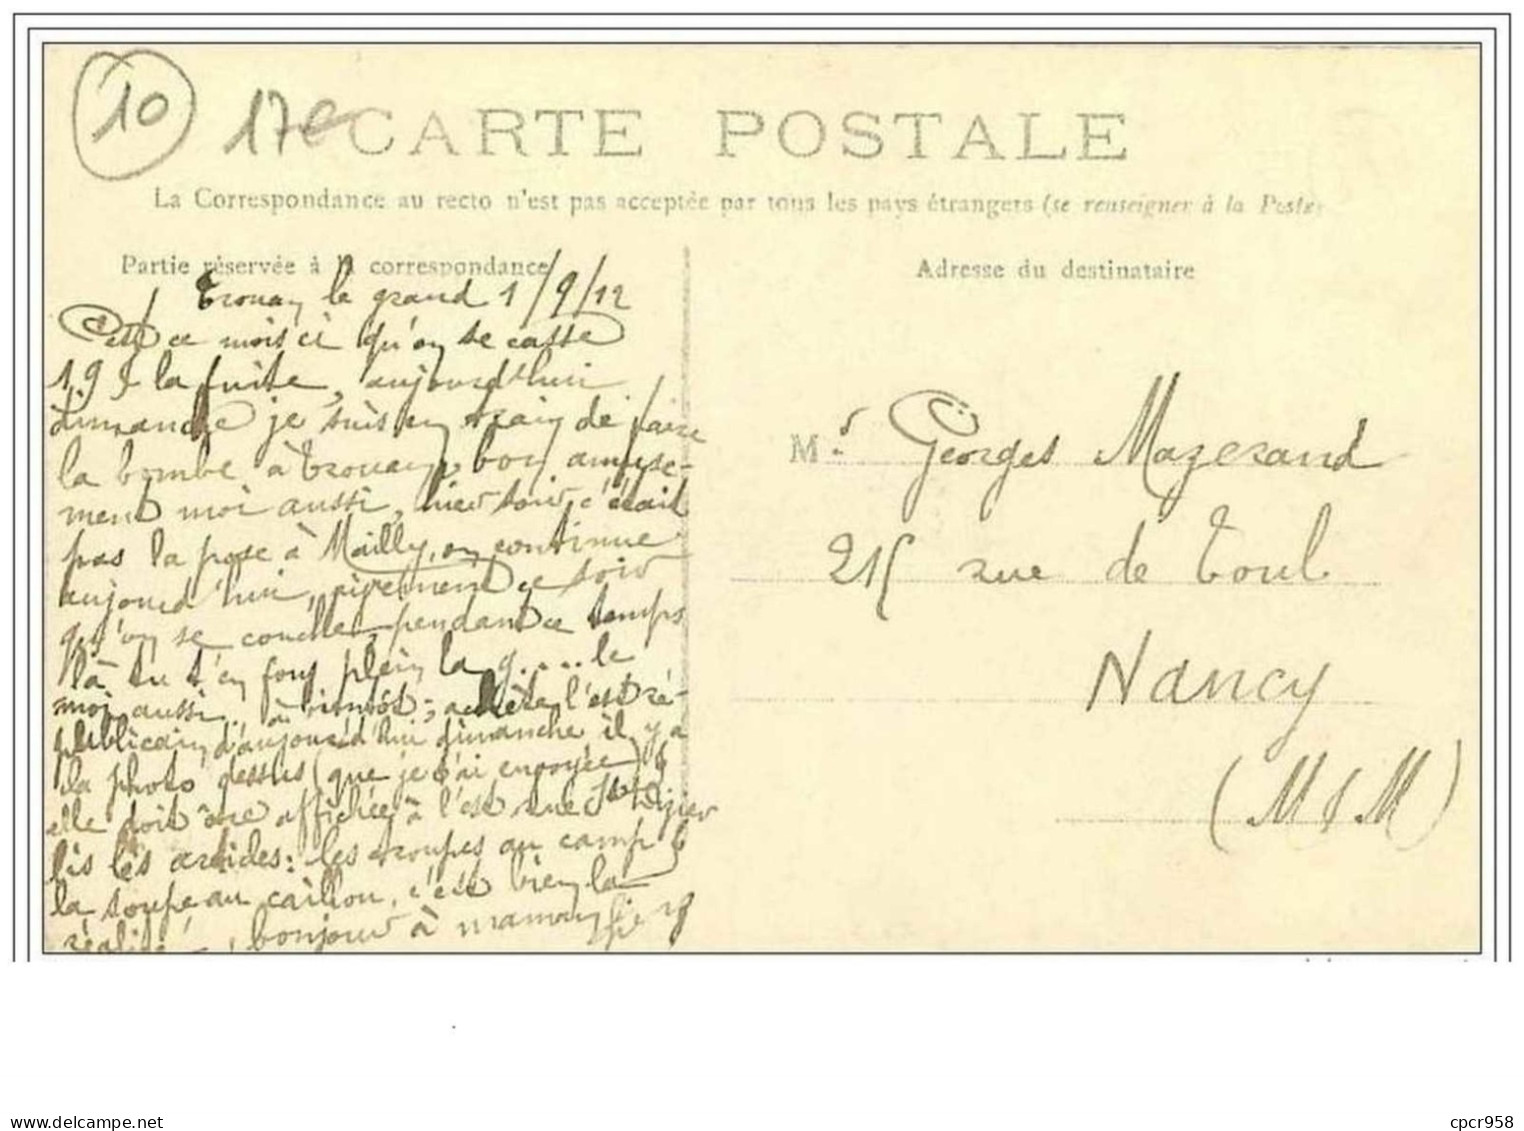 10
17e CARTE POSTALE
La Correspondance au recto n'est pas acceptée par tous les pays étrangers (se renseigner à la Poste)
Partie réservée à la correspondance
Adresse du destinataire
Trouan le grand 1/9/12
C'est ce mois ci qu'on se casse
la fuite, aujourd'hui
dimanche je suis en train de faire
la bombe à Trouan, bon amuse-
ment moi aussi, hier soir c'était
pas la pose à Mailly, on continue
aujourd'hui, vivement ce soir
qu'on se couche, pendant ce temps
là tu t'en fous plein la g....le
moi aussi.. à bientôt; achète l'est ré-
publicain d'aujourd'hui dimanche il y a
la photo dessus (que je t'ai envoyée)
elle doit être affichée à l'est rue
lis les articles: les troupes au camp
la soupe au caillou, c'est bien la
réalité, bonjour à maman
Mr. Georges Mazerand
215 rue de Toul
Nancy
(M & M)
cpcr958